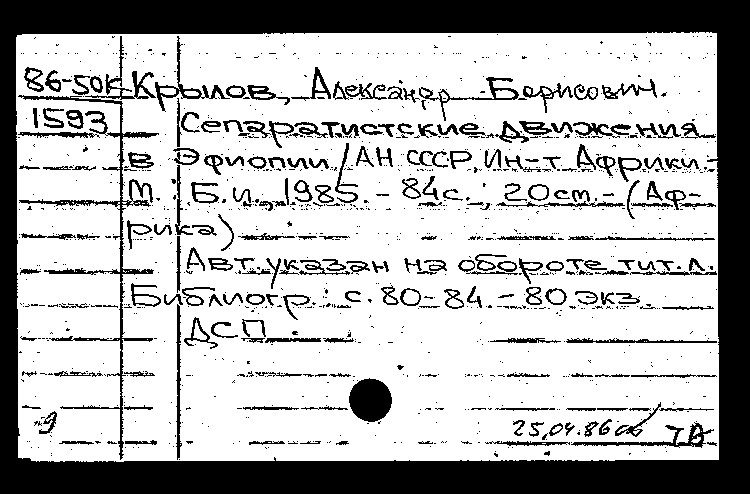 86-50К Крылов, Александр Борисович.
1593 Сепаратистские движения
в Эфиопии / АН СССР, Ин-т Африки.-
М.: Б.и., 1985.- 84с.; 20см.- (Аф-
рика)
Авт. указан на обороте тит.л.
Библиогр.: с. 80-84.- 80 экз.
ДСП.
-9
25.04.86